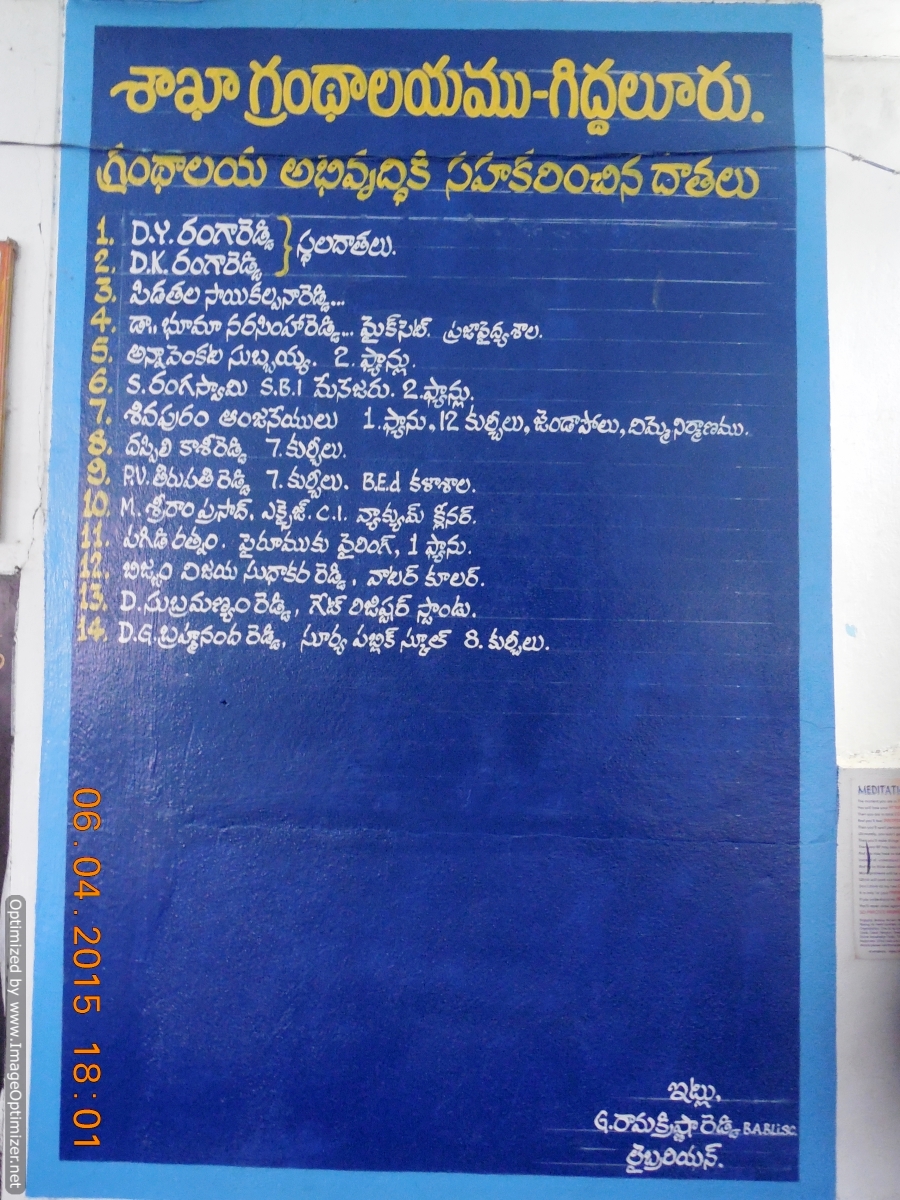 శాఖా గ్రంథాలయము-గిద్దలూరు.
గ్రంథాలయ అభివృద్ధికి సహకరించిన దాతలు
1. D.Y. రంగారెడ్డి } స్థలదాతలు.
2. D.K. రంగారెడ్డి
3. పిడతల సాయికల్పనారెడ్డి...
4. డా,, భూమా నరసింహారెడ్డి... మైక్‌సెట్. ప్రజావైద్యశాల.
5. అన్నా వెంకట సుబ్బయ్య. 2. ఫ్యాన్లు.
6. S. రంగస్వామి S.B.I మేనేజరు. 2.ఫ్యాన్లు.
7. శివపురం ఆంజనేయులు 1.ఫ్యాను, 12 కుర్చీలు, జెండాపోలు, దిమ్మె నిర్మాణము.
8. దప్పిలి కాశిరెడ్డి 7. కుర్చీలు.
9. P.V. తిరుపతి రెడ్డి 7. కుర్చీలు. B.Ed కళాశాల.
10. M. శ్రీరాం ప్రసాద్. ఎక్సైజ్. C.I. వ్యాక్యుమ్ క్లీనర్.
11. పగిడి రత్నం. ఫైరూముకు వైరింగ్, 1 ఫ్యాను.
12. బిజ్జం విజయ సుధాకర రెడ్డి, వాటర్ కూలర్.
13. D. సుబ్రమణ్యం రెడ్డి, గేట్ రిజిష్టర్ స్టాండు.
14. D.G. బ్రహ్మానంద రెడ్డి, సూర్య పబ్లిక్ స్కూల్ 8. కుర్చీలు.
ఇట్లు,
G. రామక్రిష్ణా రెడ్డి B.A.BLi.SC.
లైబ్రరియన్.
06.04.2015 18:01
Optimized by www.ImageOptimizer.net
MEDITATI